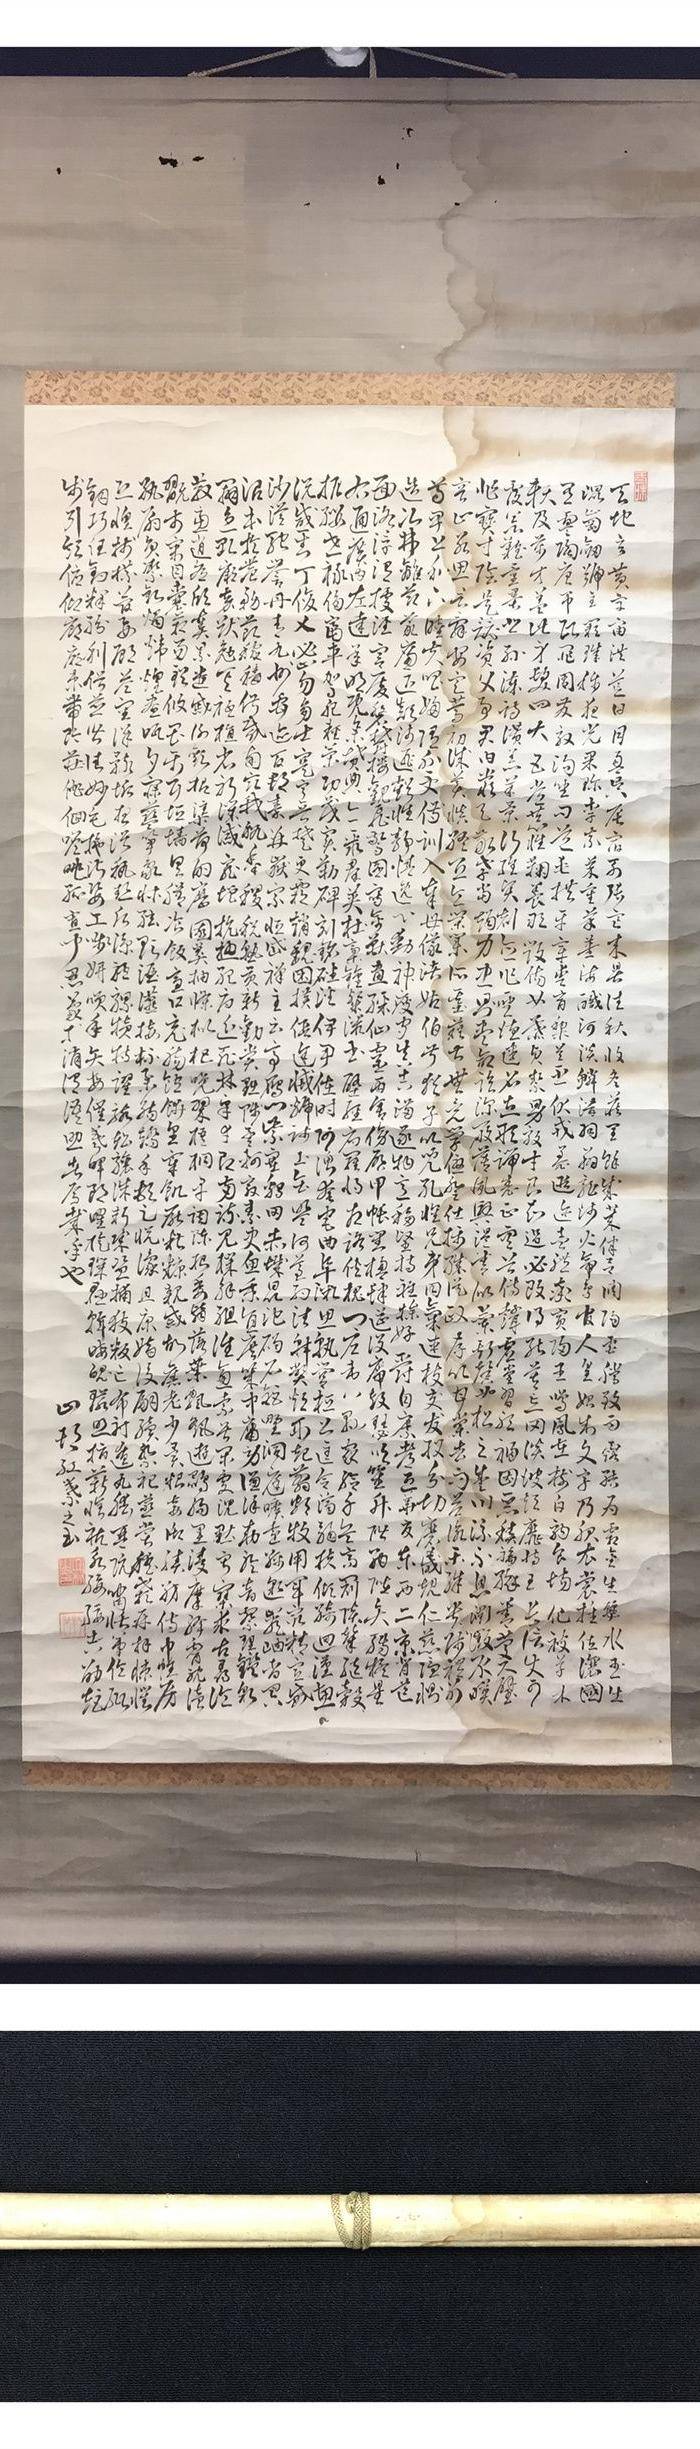 天地玄黃宇宙洪荒日月盈昃辰宿列張寒來暑往秋收冬藏閏餘成歲律呂調陽雲騰致雨露結為霜金生麗水玉出
崑岡劍號巨闕珠稱夜光果珍李柰菜重芥薑海鹹河淡鱗潛羽翔龍師火帝鳥官人皇始制文字乃服衣裳推位讓國
有虞陶唐弔民伐罪周發殷湯坐朝問道垂拱平章愛育黎首臣伏戎羌遐邇壹體率賓歸王鳴鳳在樹白駒食場化被草木
賴及萬方蓋此身髮四大五常恭惟鞠養豈敢毀傷女慕貞絜男效才良知過必改得能莫忘罔談彼短靡恃己長信使可
覆器欲難量墨悲絲染詩讚羔羊景行維賢剋念作聖德建名立形端表正空谷傳聲虛堂習聽禍因惡積福緣善慶尺璧
非寶寸陰是競資父事君曰嚴與敬孝當竭力忠則盡命臨深履薄夙興溫凊似蘭斯馨如松之盛川流不息淵澄取映
容止若思言辭安定篤初誠美慎終宜令榮業所基籍甚無竟學優登仕攝職從政存以甘棠去而益詠樂殊貴賤禮別
尊卑上和下睦夫唱婦隨外受傅訓入奉母儀諸姑伯叔猶子比兒孔懷兄弟同氣連枝交友投分切磨箴規仁慈隱惻
造次弗離節義廉退顛沛匪虧性靜情逸心動神疲守真志滿逐物意移堅持雅操好爵自縻都邑華夏東西二京背芒
面洛浮渭據涇宮殿盤鬱樓觀飛驚圖寫禽獸畫彩仙靈丙舍傍啟甲帳對楹肆筵設席鼓瑟吹笙升階納陛弁轉疑星
右通廣內左達承明既集墳典亦聚群英杜稿鍾隸漆書壁經府羅將相路俠槐卿戶封八縣家給千兵高冠陪輦驅轂
振纓世祿侈富車駕肥輕策功茂實勒碑刻銘磻溪伊尹佐時阿衡奄宅曲阜微旦孰營桓公匡合濟弱扶傾綺迴漢惠
說感武丁俊乂密勿多士寔寧晉楚更霸趙魏困橫假途滅虢踐土會盟何遵約法韓弊煩刑起翦頗牧用軍最精宣威
沙漠馳譽丹青九州禹跡百郡秦并嶽宗恒岱禪主云亭雁門紫塞雞田赤城昆池碣石鉅野洞庭曠遠綿邈巖岫杳冥
治本於農務茲稼穡俶載南畝我藝黍稷稅熟貢新勸賞黜陟孟軻敦素史魚秉直庶幾中庸勞謙謹敕聆音察理鑑貌
辨色貽厥嘉猷勉其祗植省躬譏誡寵增抗極殆辱近恥林皋幸即兩疏見機解組誰逼索居閑處沉默寂寥求古尋論
散慮逍遙欣奏累遣慼謝歡招渠荷的歷園莽抽條枇杷晚翠梧桐早凋陳根委翳落葉飄颻遊鵾獨運凌摩絳霄耽讀
翫市寓目囊箱易輶攸畏屬耳垣牆具膳餐飯適口充腸飽飫烹宰飢厭糟糠親戚故舊老少異糧妾御績紡侍巾帷房
紈扇圓潔銀燭煒煌晝眠夕寐藍筍象床絃歌酒讌接杯舉觴矯手頓足悅豫且康嫡後嗣續祭祀烝嘗稽顙再拜悚懼
恐惶牋牒簡要顧答審詳骸垢想浴執熱願涼驢騾犢特駭躍超驤誅斬賊盜捕獲叛亡布射遼丸嵇琴阮嘯恬筆倫紙
鈞巧任釣釋紛利俗並皆佳妙毛施淑姿工顰妍笑年矢每催曦暉朗曜璇璣懸斡晦魄環照指薪修祜永綏吉劭矩
步引領俯仰廊廟束帶矜莊徘徊瞻眺孤陋寡聞愚蒙等誚謂語助者焉哉乎也